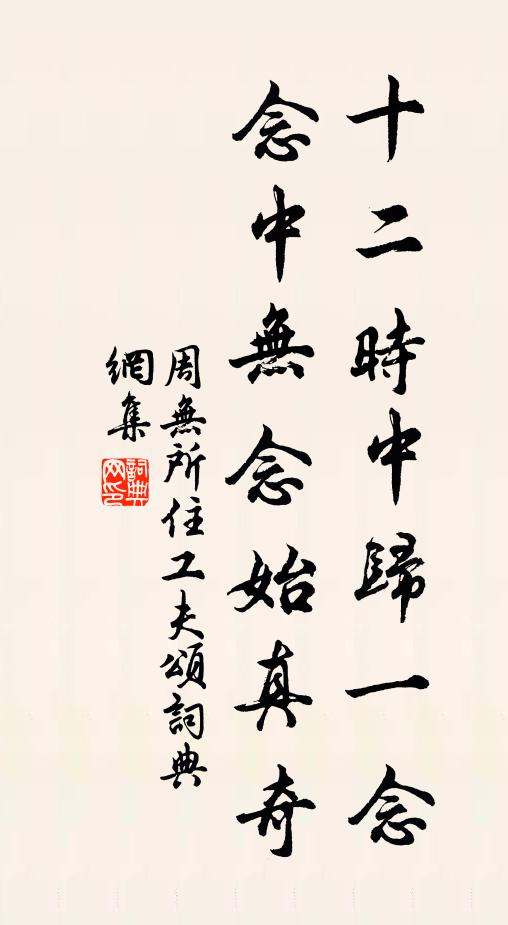 十二時中歸一念
念中無念始真奇
周無所住工夫頌詞典
網集
詞典網印